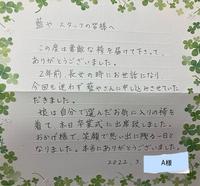 藍や スタッフの皆様へ
この度は素敵な袴を届けて下さって、
ありがとうございました。
2年前、長女の時にお世話になり
今回も迷わず藍やさんに申し込みさせていた
だきました。
娘は自分で選んだお気に入りの袴を
着て、本日卒業式に出席致しました。
おかげ様で、笑顔で思い出に残る一日と
なりました。本当にありがとうございました。
2022.3
A様